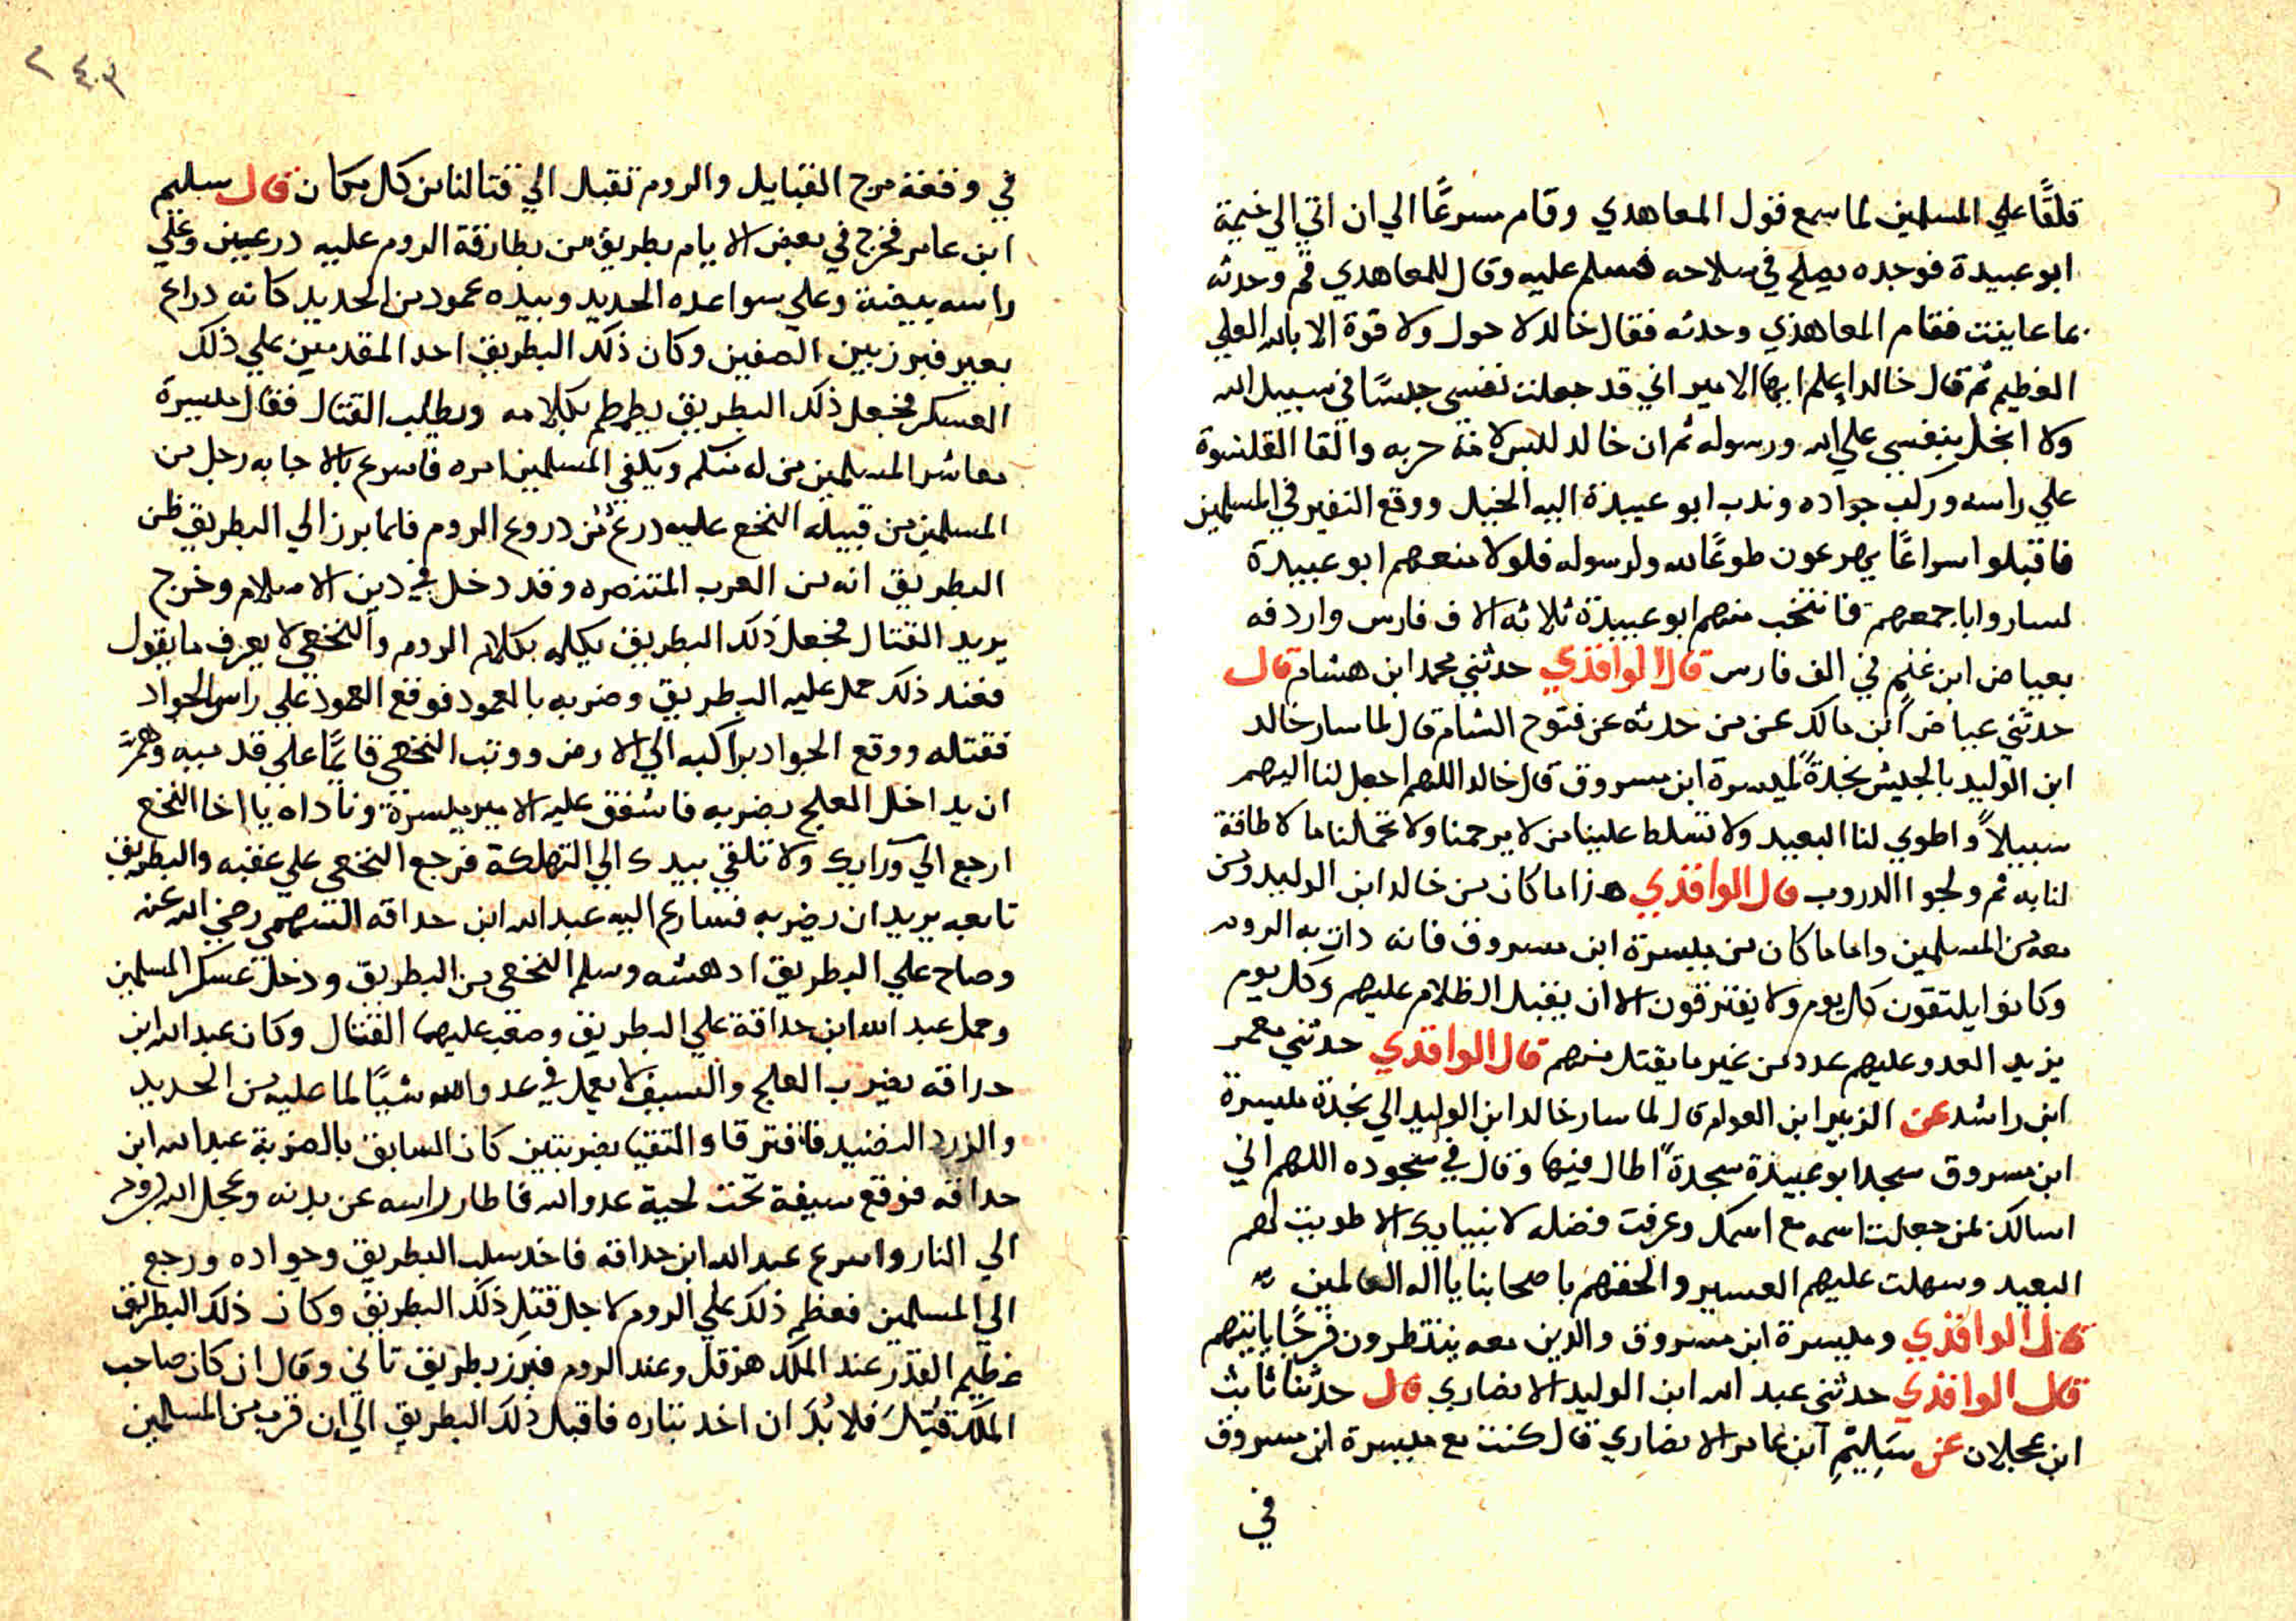 قلقًا علي المسلمين لما سمع قول المعاهدي وقام مسرعًا الي ان اتي الي خيمة
ابو عبيدة فوجده يصلح في سلاحه فسلم عليه وقال للمعاهدي قم وحدثه
بما عاينت فقام المعاهدي وحدثه فقال خالد لا حول ولا قوة الا بالله العلي
العظيم ثم قال خالد اعلم ايها الامير اني قد جعلت نفسي حبسًا في سبيل الله
ولا ابخل بنفسي علي الله ورسوله ثم ان خالد لبس لامة حربه والقا القلنسوة
علي راسه وركب جواده وندب ابو عبيدة اليه الخيل ووقع النفير في المسلمين
فاقبلوا اسراعًا يهرعون طوعًا لله ولرسوله فلولا منعهم ابو عبيدة
لساروا باجمعهم فانتخب منهم ابو عبيدة ثلاثه الاف فارس واردفه
بعياض ابن غنم في الف فارس قال الواقدي حدثني محمد ابن هشام قال
حدثني عياض ابن مالك عن من حدثه عن فتوح الشام قال لما سار خالد
ابن الوليد بالجيش نجدةً لميسرة ابن مسروق قال خالد اللهم اجعل لنا اليهم
سبيلاً واطوي لنا البعيد ولا تسلط علينا من لا يرحمنا ولا تحملنا ما لا طاقة
لنا به ثم ولجوا الدروب قال الواقدي هذا ما كان من خالد ابن الوليد ومن
معه من المسلمين واما ما كان من ميسرة ابن مسروق فانه دات به الروم
وكانوا يلتقون كل يوم ولا يفترقون الا ان يقبل الظلام عليهم وكل يوم
يزيد العدو عليهم عدد من غير ما يقتل منهم قال الواقدي حدثني معمر
ابن راشد عن الزبير ابن العوام قال لما سار خالد ابن الوليد الي نجدة ميسرة
ابن مسروق سجد ابو عبيدة سجدةً اطال فيها وقال في سجوده اللهم اني
اسالك بمن جعلت اسمه مع اسمك وعرفت فضله لانبيايك الا طويت لهم
البعيد وسهلت عليهم العسير والحقهم باصحابنا يا اله العالمين
قال الواقدي وميسرة ابن مسروق والذين معه ينتظرون فرجًا ياتيهم
قال الواقدي حدثني عبد الله ابن الوليد الانصاري قال حدثنا ثابت
ابن عجلان عن سليم ابن عامر الانصاري قال كنت مع ميسرة ابن مسروق
في
٢٤٣
في وقعة مرج القبايل والروم تقبل الي قتالنا من كل مكان قال سليم
ابن عامر فخرج في بعض الايام بطريق من بطارقة الروم عليه درعين وعلي
راسه بيضة وعلي سواعده الحديد وبيده عمود من الحديد كانه دراع
بعير فبرز بين الصفين وكان ذلك البطريق احد المقدمين علي ذلك
العسكر فجعل ذلك البطريق يطمطم بكلامه ويطلب القتال فقال ميسرة
معاشر المسلمين من له منكم ويكفي المسلمين امره فاسرع بالاجابه رجل من
المسلمين من قبيلة النخع عليه درع من دروع الروم فلما برز الي البطريق ظن
البطريق انه من العرب المتنصره وقد دخل في دين الاسلام وخرج
يريد القتال فجعل ذلك البطريق يكلمه بكلام الروم والنخعي لا يعرف ما يقول
فعند ذلك حمل عليه البطريق وضربه بالعمود فوقع العمود علي راس الجواد
فقتله ووقع الجواد براكبه الي الارض ووثب النخعي قايمًا علي قدميه وهمَّ
ان يداخل العلج بضربه فاشفق عليه الامير ميسرة وناداه يا اخا النخع
ارجع الي ورايك ولا تلقي بيدك الي التهلكة فرجع النخعي علي عقبه والبطريق
تابعه يريد ان يضربه فسارع اليه عبد الله ابن حداقه السهمي رضي الله عنه
وصاح علي البطريق ادهشه وسلم النخعي من البطريق ودخل عسكر المسلمين
وحمل عبد الله ابن حداقة علي البطريق وصعب عليهما القتال وكان عبد الله ابن
حداقه يضرب العلج والسيف لا يعمل في عدو الله شيًا لما عليه من الحديد
والزرد النضيد فافترقا والتقيا بضربتين كان السابق بالضربة عبد الله ابن
حداقه فوقع سيفه تحت لحية عدو الله فاطار راسه عن بدنه وعجل الله بروحه
الي النار واسرع عبد الله ابن حداقه فاخد سلب البطريق وجواده ورجع
الي المسلمين فعظم ذلك علي الروم لاجل قتل ذلك البطريق وكان ذلك البطريق
عظيم القدر عند الملك هرقل وعند الروم فبرز بطريق تاني وقال ان كان صاحب
الملك قُتِلَ فلا بُدَّ ان اخد بتاره فاقبل ذلك البطريق الي ان قرب من المسلمين